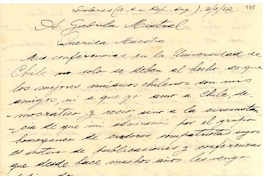 Dolores (B. A. - Rep. Arg.), 2/8/52
A Gabriela Mistral
Querida Maestra
Mis conferencias en la Universidad de
Chile no solo se deben al hecho de que
los mejores músicos chilenos son mis
amigos, ni a que yo amo a Chile de-
mocrático y recio sino a la circunstan-
cia de que mi admiración por el grupo
homogéneo de creadores compatriotas suyos
es motivo de publicaciones y conferencias
que desde hace muchos años les vengo